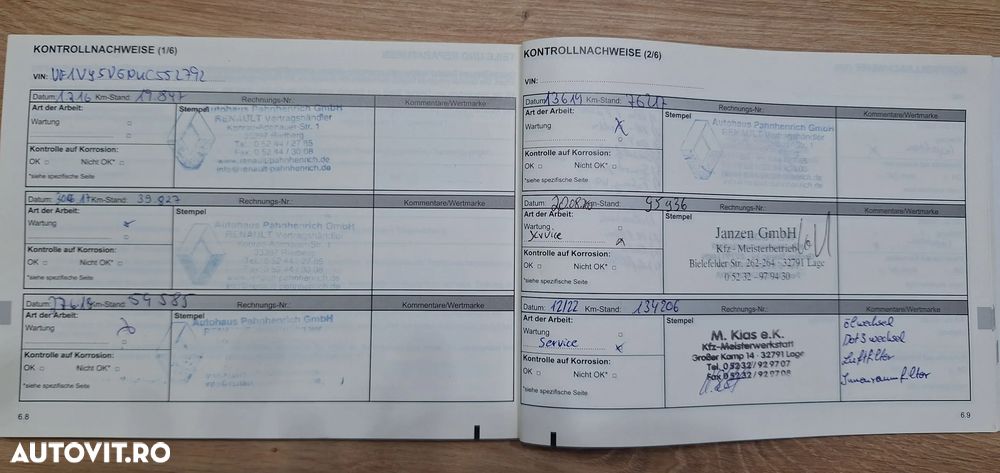 KONTROLLNACHWEISE (1/6)
VIN: VF1VY5VGPUC552792
Datum: 1216 Km-Stand: 19.847 Rechnungs-Nr.: Kommentare/Wertmarke
Art der Arbeit:
Wartung
Kontrolle auf Korrosion:
OK □ Nicht OK* □
*siehe spezifische Seite
Stempel
Autohaus Pahnhenrich GmbH
RENAULT Vertragshändler
Konrad-Adenauer-Str. 1
33397 Rietberg
Tel. 0 52 44 / 27 65
Fax 0 52 44 / 30 08
www.renault-pahnhenrich.de
info@renault-pahnhenrich.de
Datum: Km-Stand: 39.827 Rechnungs-Nr.: Kommentare/Wertmarke
Art der Arbeit:
Wartung
Kontrolle auf Korrosion:
OK □ Nicht OK* □
*siehe spezifische Seite
Stempel
Autohaus Pahnhenrich GmbH
RENAULT Vertragshändler
Datum: Km-Stand: 54585 Rechnungs-Nr.: Kommentare/Wertmarke
Art der Arbeit:
Wartung
Kontrolle auf Korrosion:
OK □ Nicht OK* □
*siehe spezifische Seite
Stempel
Autohaus Pahnhenrich GmbH
6.8
KONTROLLNACHWEISE (2/6)
VIN:
Datum: 13619 Km-Stand: 76217 Rechnungs-Nr.: Kommentare/Wertmarke
Art der Arbeit:
Wartung
Kontrolle auf Korrosion:
OK □ Nicht OK* □
*siehe spezifische Seite
Stempel
Autohaus Pahnhenrich GmbH
RENAULT Vertragshändler
Datum: Km-Stand: 95936 Rechnungs-Nr.: Kommentare/Wertmarke
Art der Arbeit:
Wartung
Service
Kontrolle auf Korrosion:
OK □ Nicht OK* □
*siehe spezifische Seite
Stempel
Janzen GmbH
Kfz - Meisterbetrieb
Bielefelder Str. 262-264 · 32791 Lage
0 52 32 - 97 94 30
Datum: 12/22 Km-Stand: 134206 Rechnungs-Nr.: Kommentare/Wertmarke
Art der Arbeit:
Wartung
Service
Kontrolle auf Korrosion:
OK □ Nicht OK* □
*siehe spezifische Seite
Stempel
M. Kias e.K.
Kfz-Meisterwerkstatt
Großer Kamp 14 · 32791 Lage
Tel. 0 52 32 / 92 97 07
Fax 0 52 32 / 92 97 08
Ölwechsel
Dot 3 wechsel
Luftfilter
Innenraumfilter
6.9
AUTOVIT.RO